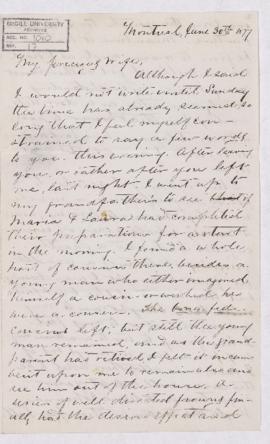 McGILL UNIVERSITY
ARCHIVES
ACC. NO. 1010
REF. 17
Montreal, June 30th 1877
My Precious Wife,
Although I said
I would not write until Sunday
the time has already seemed so
long that I feel myself con-
strained to say a few words
to you this evening. After leaving
you, or rather after you left
me last night I went up to
my grandfather's to see
Maria & Laura had completed
their preparations for a start
in the morning. I found a whole
host of cousins there, besides a
young man who either imagined
himself a cousin or wished he
were a cousin. The
cousins left, but still the young
man remained, and as the grand-
parent had retired I felt it incum-
bent upon me to remain also and
see him out of the house. A
series of well directed frowns fin-
ally had the desired effect and